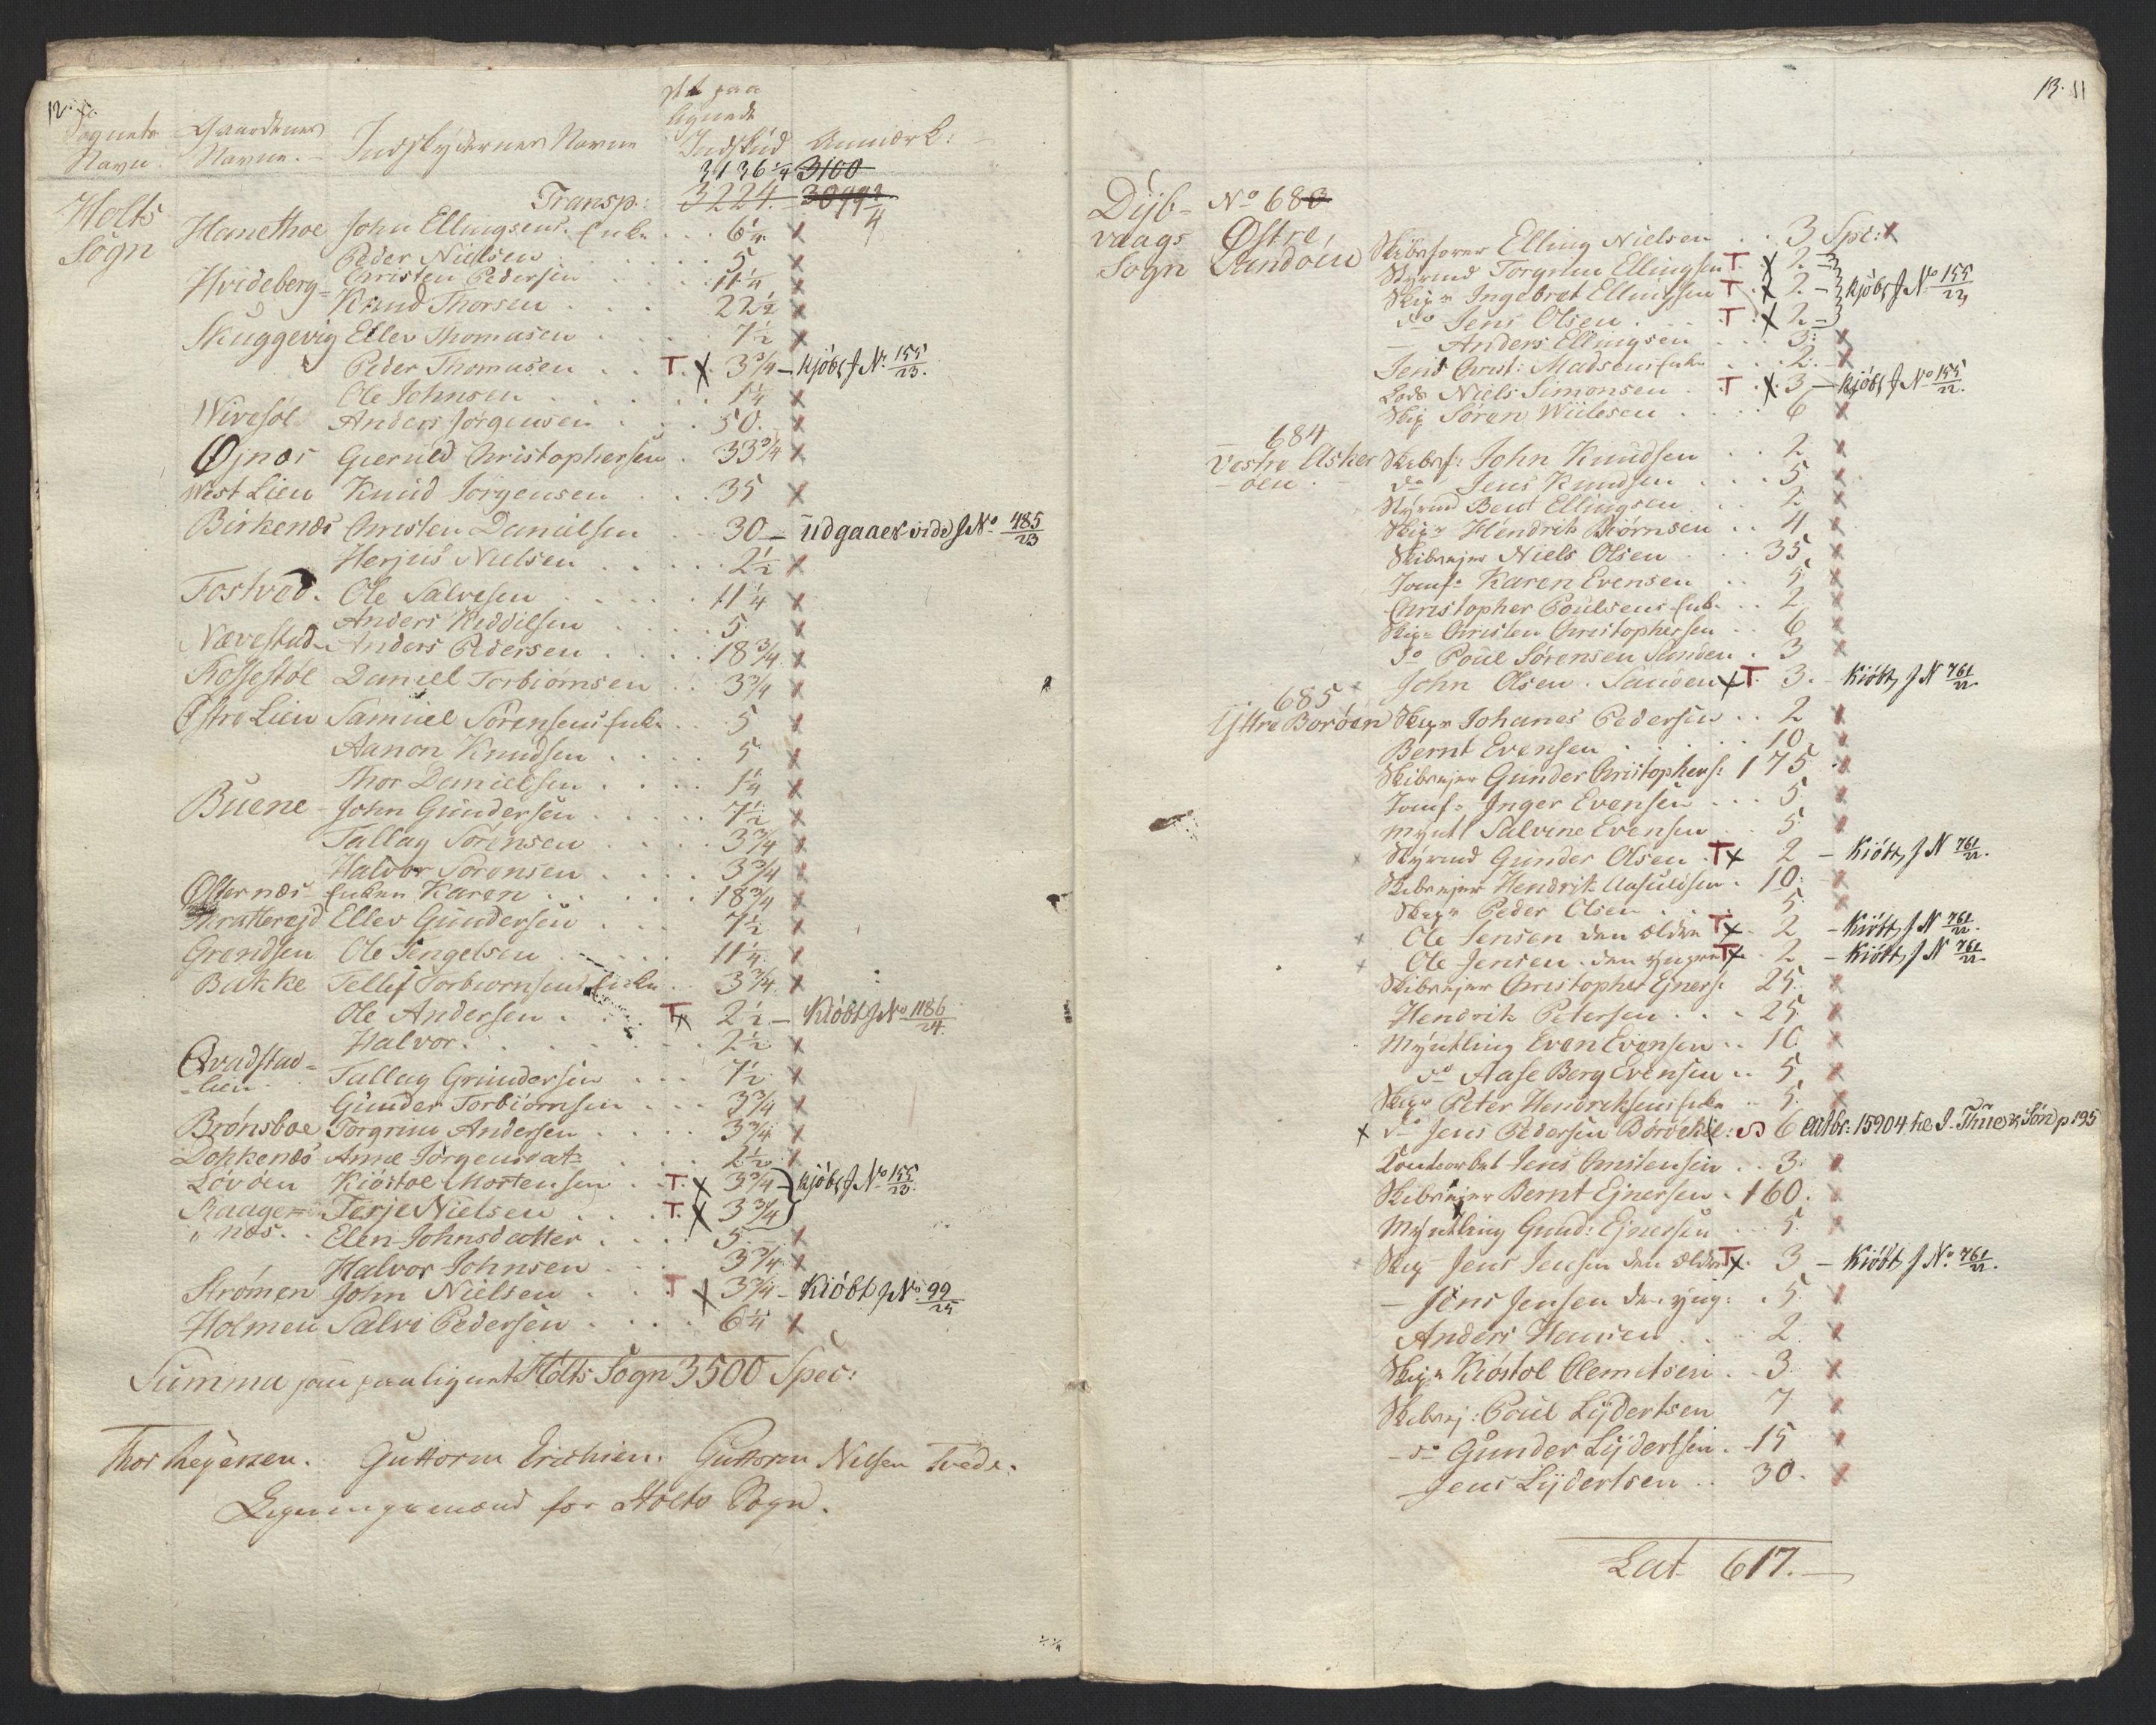 12.
Sognets Navn. Gaardenes Navne. Indskydernes Navne
paa lignede Indskud Anmærk:
3136 1/4 3100
Transp: 3224. 3099 3/4
Holts Sogn
Hanethoe John Ellingsens Enke . . . 6 1/4
Peder Nielsen . . . 5
Hvideberg Christen Pedersen . . . 11 1/4
Knud Thorsen . . . 22 1/2
Skuggevig Ellev Thomasen . . . 7 1/2
Peder Thomasen . . T. x 3 3/4 – kjöbt J N. 155/23.
Ole Johnsen . . . 1 1/4
Nivesöl Anders Jørgensen . . . 50.
Øjnæs Gieruld Christophersen . 33 3/4
West Lien Knud Jørgensen . . . 35
Birkenæs Christen Danielsen . . 30 – udgaaer vide J No 485/23
Herjus Nielsen . . . 2 1/2
Fostved. Ole Salvesen . . . 11 1/4
Anders Keddelsen . . . 5
Nævestad Anders Pedersen . . . 18 3/4
Kossestøl Daniel Torbiørnsen . . 3 3/4
Østre Lien Samuel Sørensens Enke . . 5
Aanon Knudsen . . . 5
Thor Danielsen . . . 1 1/4
Buene John Gundersen . . . 7 1/2
Tallag Sørensen . . . 3 3/4
Halvor Sørensen . . . 3 3/4
Østernæs Enken Karen . . . 18 3/4
Ellev Gundersen . . . 7 1/2
Grendsen Ole Tengelsen . . . 11 1/4
Bakke Tellef Torbiørnsens Enke . . 3 3/4
Ole Andersen . . T x 2 1/2 – Kiöbt J No 1186/24.
Halvor . . . 2 1/2
Qvadstad-lien. Tallag Gundersen . . . 7 1/2
Gunder Torbiørnsen . . . 3 3/4
Brønsboe Torgrim Andersen . . . 3 3/4
Dokkenæs Anne Jørgensdat: . . . 2 1/2
Lövöen Kiöstol Mortensen . T. x 3 3/4 – kjöbt J No 155/23.
Raager-næs. Terje Nielsen . . T. x 3 3/4
Elen Johnsdatter . . . 5
Halvor Johnsen . . . 3 3/4
Strømen John Nielsen . . T x 3 3/4 – Kiöbt J No 99/25
Holmen Salve Pedersen . . . 6 1/4
Summa paalignet Holts Sogn 3500 Spec:
Thor Guttorm Guttorm Nilsen Tvede.
Ligningsmænd for Holts Sogn.
13. 11
Dyb-vaags Sogn
No 683
Østre Sandöen Skibsfører Elling Nielsen . . 3 Spc:
Styrmd Torgrim Ellingsen T. x 2 –
Skipr Ingebret Ellingsen T. x 2 – kjöbt J No 155/23
do Jens Olsen . . T. x 2 –
– Anders Ellingsen . . . 3:
Jens Christ: Madsens Enke . . . 2.
Lods Niels Simonsen . T. x. 3 – kjöbt J No 155/22.
Skip Søren Wiilesen . . . 6
684
Vestre Asker-öen. Skibsf: John Knudsen . . 2
do Jens Knudsen . . . 5
Styrmd Bent Ellingsen . . 2
Skipr Hendrik Biørnsen . . 4
Skibsejer Niels Olsen . . . 35
Jomf: Karen Evensen . . 5
Christopher Poulsens Enke . . 2
Skipr Christen Christophersen . . 6
do Poul Sørensen Sanden . 3
John Olsen . Sanden x T. 3. – kiöbt, J N 761/22
685
Ystre Boröen Skipr Johanes Pedersen . . 2
Bernt Evensen . . . 10
Skibsejer Gunder Christophers: 175
Jomf: Inger Evensen . . . 5
Myntl Salvine Evensen . . 5
Styrmd Gunder Olsen . T x 2 – Kiöbt, J N 761/22.
Skibsejer Hendrik Aasulvsen . 10
Skipr Peder Olsen . . . 5
Ole Jensen den ældre T x. 2 – Kiöbt, J N 761/22.
Ole Jensen . den yngre T x . 2 – Kiöbt, J N 761/22
Skibsejer Christopher Ejners: 25
Hendrik Petersen . . . 25
Myntling Even Evensen . . 10
do Aase Berg Evensen . . 5
Skipr Peter Hendriksens Enke . . 5.
x do Jens Pedersen : 6 p 195
Jens Christensen . . 3
Skibsejer Bernt Ejnersen . 160.
Myntling Gund: Ejnersen . . . 5
Skip Jens Jensen den ældre T x. 3 – Kiöbt J No. 761/22.
– Jens Jensen den yng: . 5
Anders Hansen . . . 2
Skipr Kiöstol Clemetsen . . 3
Skibsej: Poul Lydertsen 7
– do Gunder Lydertsen . 15
– Jens Lydertsen . . 30.
Lat 617. –